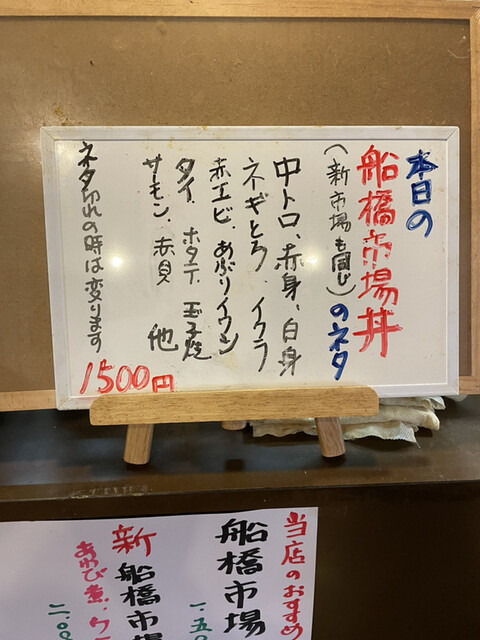 本日の
船橋市場丼
(新市場も同じ)のネタ
中トロ、赤身、白身
ネギとろ、イクラ
赤エビ、あぶりイワシ
タイ、ホタテ、玉子焼
サーモン、赤貝 他
ネタ切れの時は変ります
1500円
当店のおすすめ
船橋市場
一.五〇
新 船橋市場
あわび煮.ウニ
二.〇〇